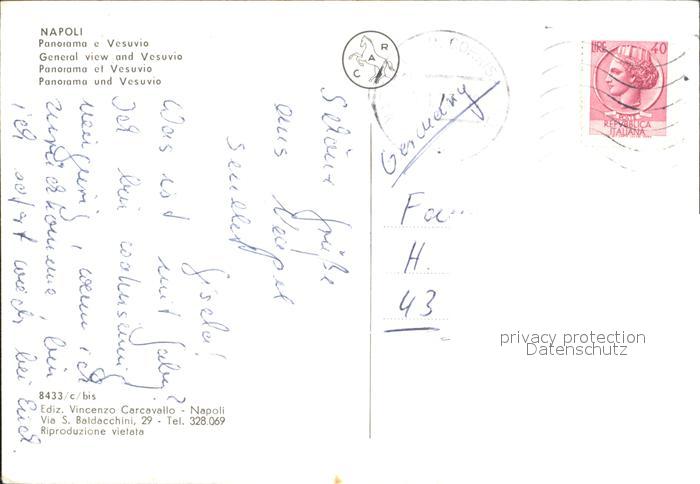 NAPOLI
Panorama e Vesuvio
General view and Vesuvio
Panorama et Vesuvio
Panorama und Vesuvio
CAR
LIRE 40
REPVBBLICA
ITALIANA
Germany
Schöne Grüße
aus Neapel
sendet
Gisela!
Was ist mit Gaby?
Ich bin wahnsinnig
neugierig, wenn ich
zurückkomme, bin
ich sofort wieder bei Euch.
Fa
H.
43
privacy protection
Datenschutz
8433/c/bis
Ediz. Vincenzo Carcavallo - Napoli
Via S. Baldacchini, 29 - Tel. 328.069
Riproduzione vietata